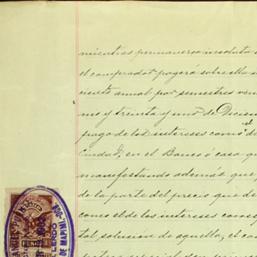 mientras permanezca insoluta
el comprador pagará sobre ella
ciento anual por semestres ven
mo y treinta y uno de Diciem
pago de los intereses como de
Ciudad, en el Banco ó casa que
manifestando además que,
de la parte del precio que de
como el de los intereses cons
tal solucion de aquello, el con
LERDO
DE MAPIMI